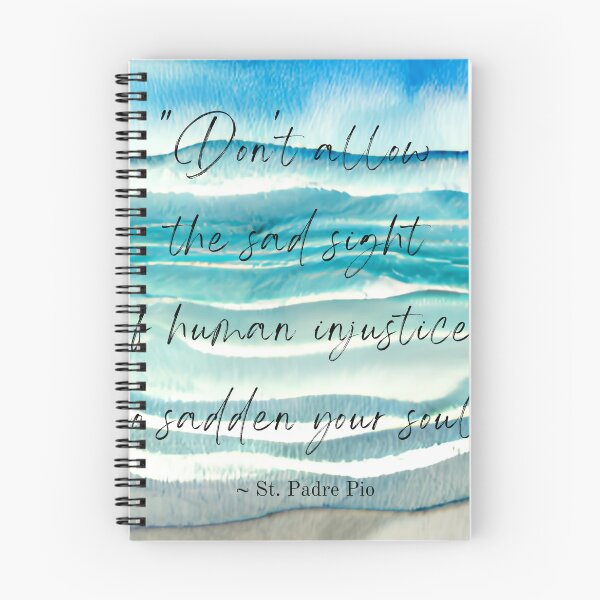 "Don't allow
the sad sight
f human injustice
o sadden your soul
~ St. Padre Pio